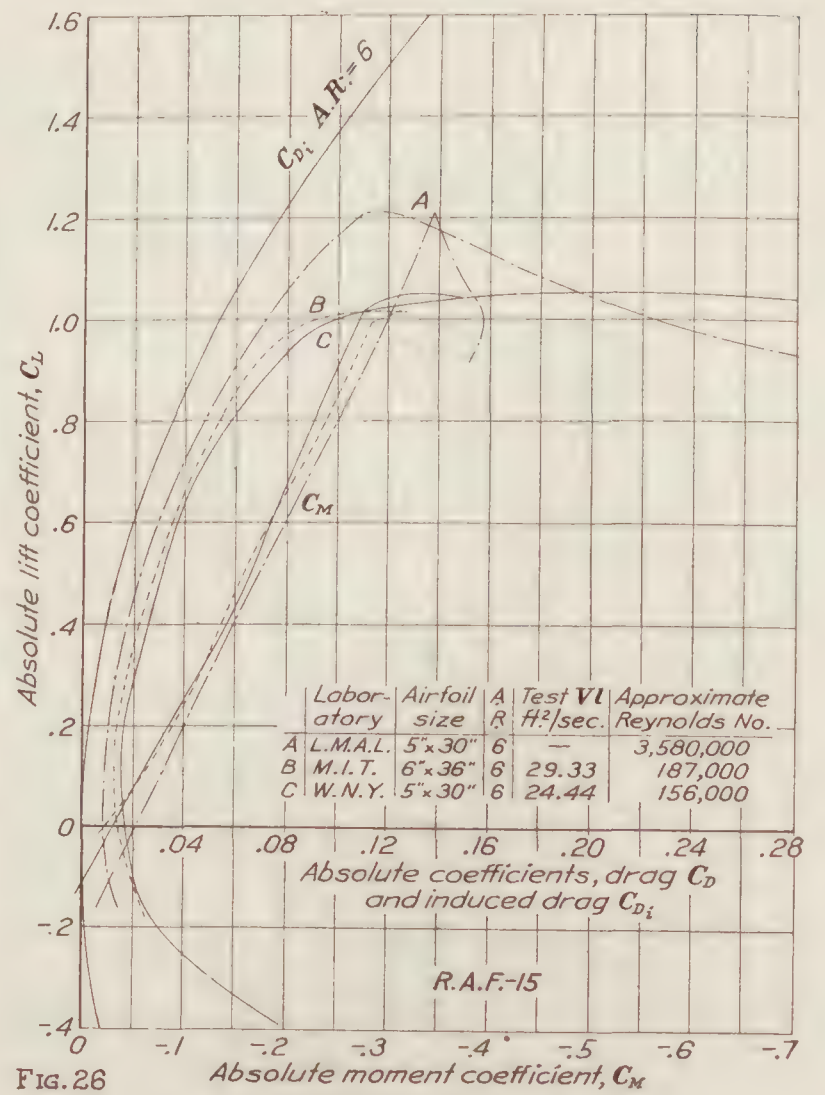 1.6
1.4
1.2
1.0
.8
.6
.4
.2
0
-.2
-.4
Absolute lift coefficient, C_L
C_Di A.R. = 6
A
B
C
C_M
Labor- Airfoil A Test Vl Approximate
atory size R ft²/sec. Reynolds No.
A L.M.A.L. 5"x30" 6 — 3,580,000
B M.I.T. 6"x36" 6 29.33 187,000
C W.N.Y. 5"x30" 6 24.44 156,000
.04 .08 .12 .16 .20 .24 .28
Absolute coefficients, drag C_D
and induced drag C_Di
R.A.F.-15
0 -.1 -.2 -.3 -.4 -.5 -.6 -.7
FIG. 26 Absolute moment coefficient, C_M